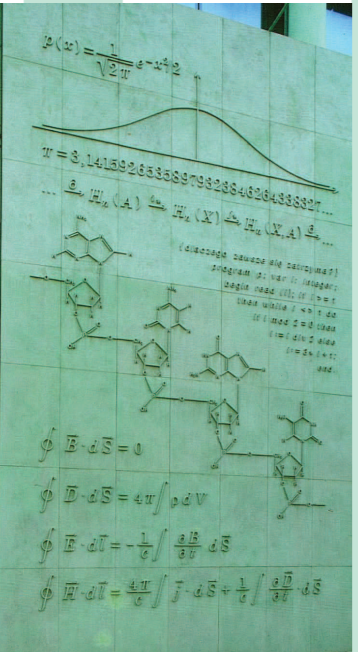 p(x) = 1/√2π e^-x²/2
π = 3,1415926535897932384626433832 7...
... ∂* Hₙ(A) i* Hₙ(X) j* Hₙ(X,A) ∂* ...
(dlaczego zawsze się zatrzyma?)
program p; var i: integer;
begin read (i); if i >= 1
then while i <> 1 do
if i mod 2 = 0 then
i := i div 2 else
i := 3* i + 1;
end.
∮ B̄ · dS̄ = 0
∮ D̄ · dS̄ = 4π ∫ ρ dV
∮ Ē · dl̄ = - 1/c ∫ ∂B̄/∂t · dS̄
∮ H̄ · dl̄ = 4π/c ∫ j̄ · dS̄ + 1/c ∫ ∂D̄/∂t · dS̄